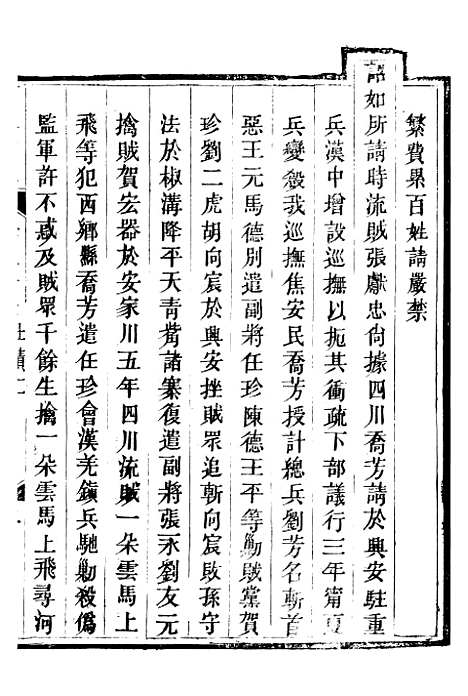 繁費累百姓請嚴禁
詔如所請時流賊張獻忠尙據四川喬芳請於興安駐重
兵漢中增設巡撫以扼其衝疏下部議行三年甯夏
兵變殺我巡撫焦安民喬芳授計總兵劉芳名斬首
惡王元馬德別遣副將任珍陳德王平等勦賊黨賀
珍劉二虎胡向宸於興安挫賊眾追斬向宸敗孫守
法於椒溝降平天青觜諸寨復遣副將張永劉友元
擒賊賀宏器於安家川五年四川流賊一朵雲馬上
飛等犯西鄉縣喬芳遣任珍會漢羌鎮兵馳勦殺僞
監軍許不惑及賊眾千餘生擒一朵雲馬上飛尋河